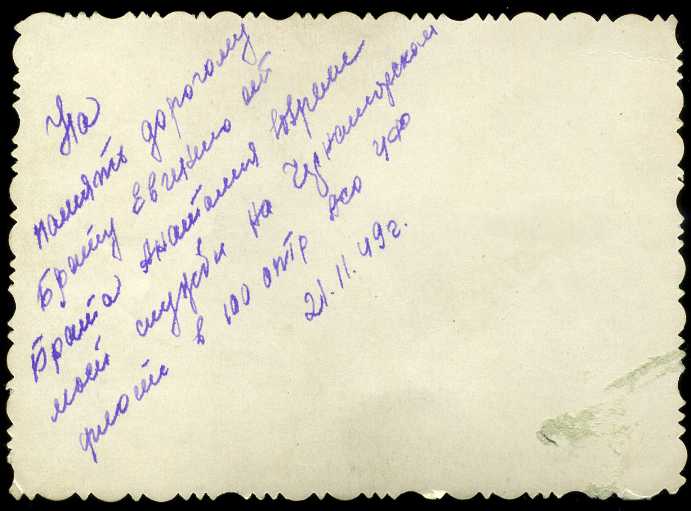 На
память дорогому
Брату Евгению от
Брата Анатолия вовремя
моей службы на Черноморском
флоте в 100 АСО ЧФ
21.11.49г.